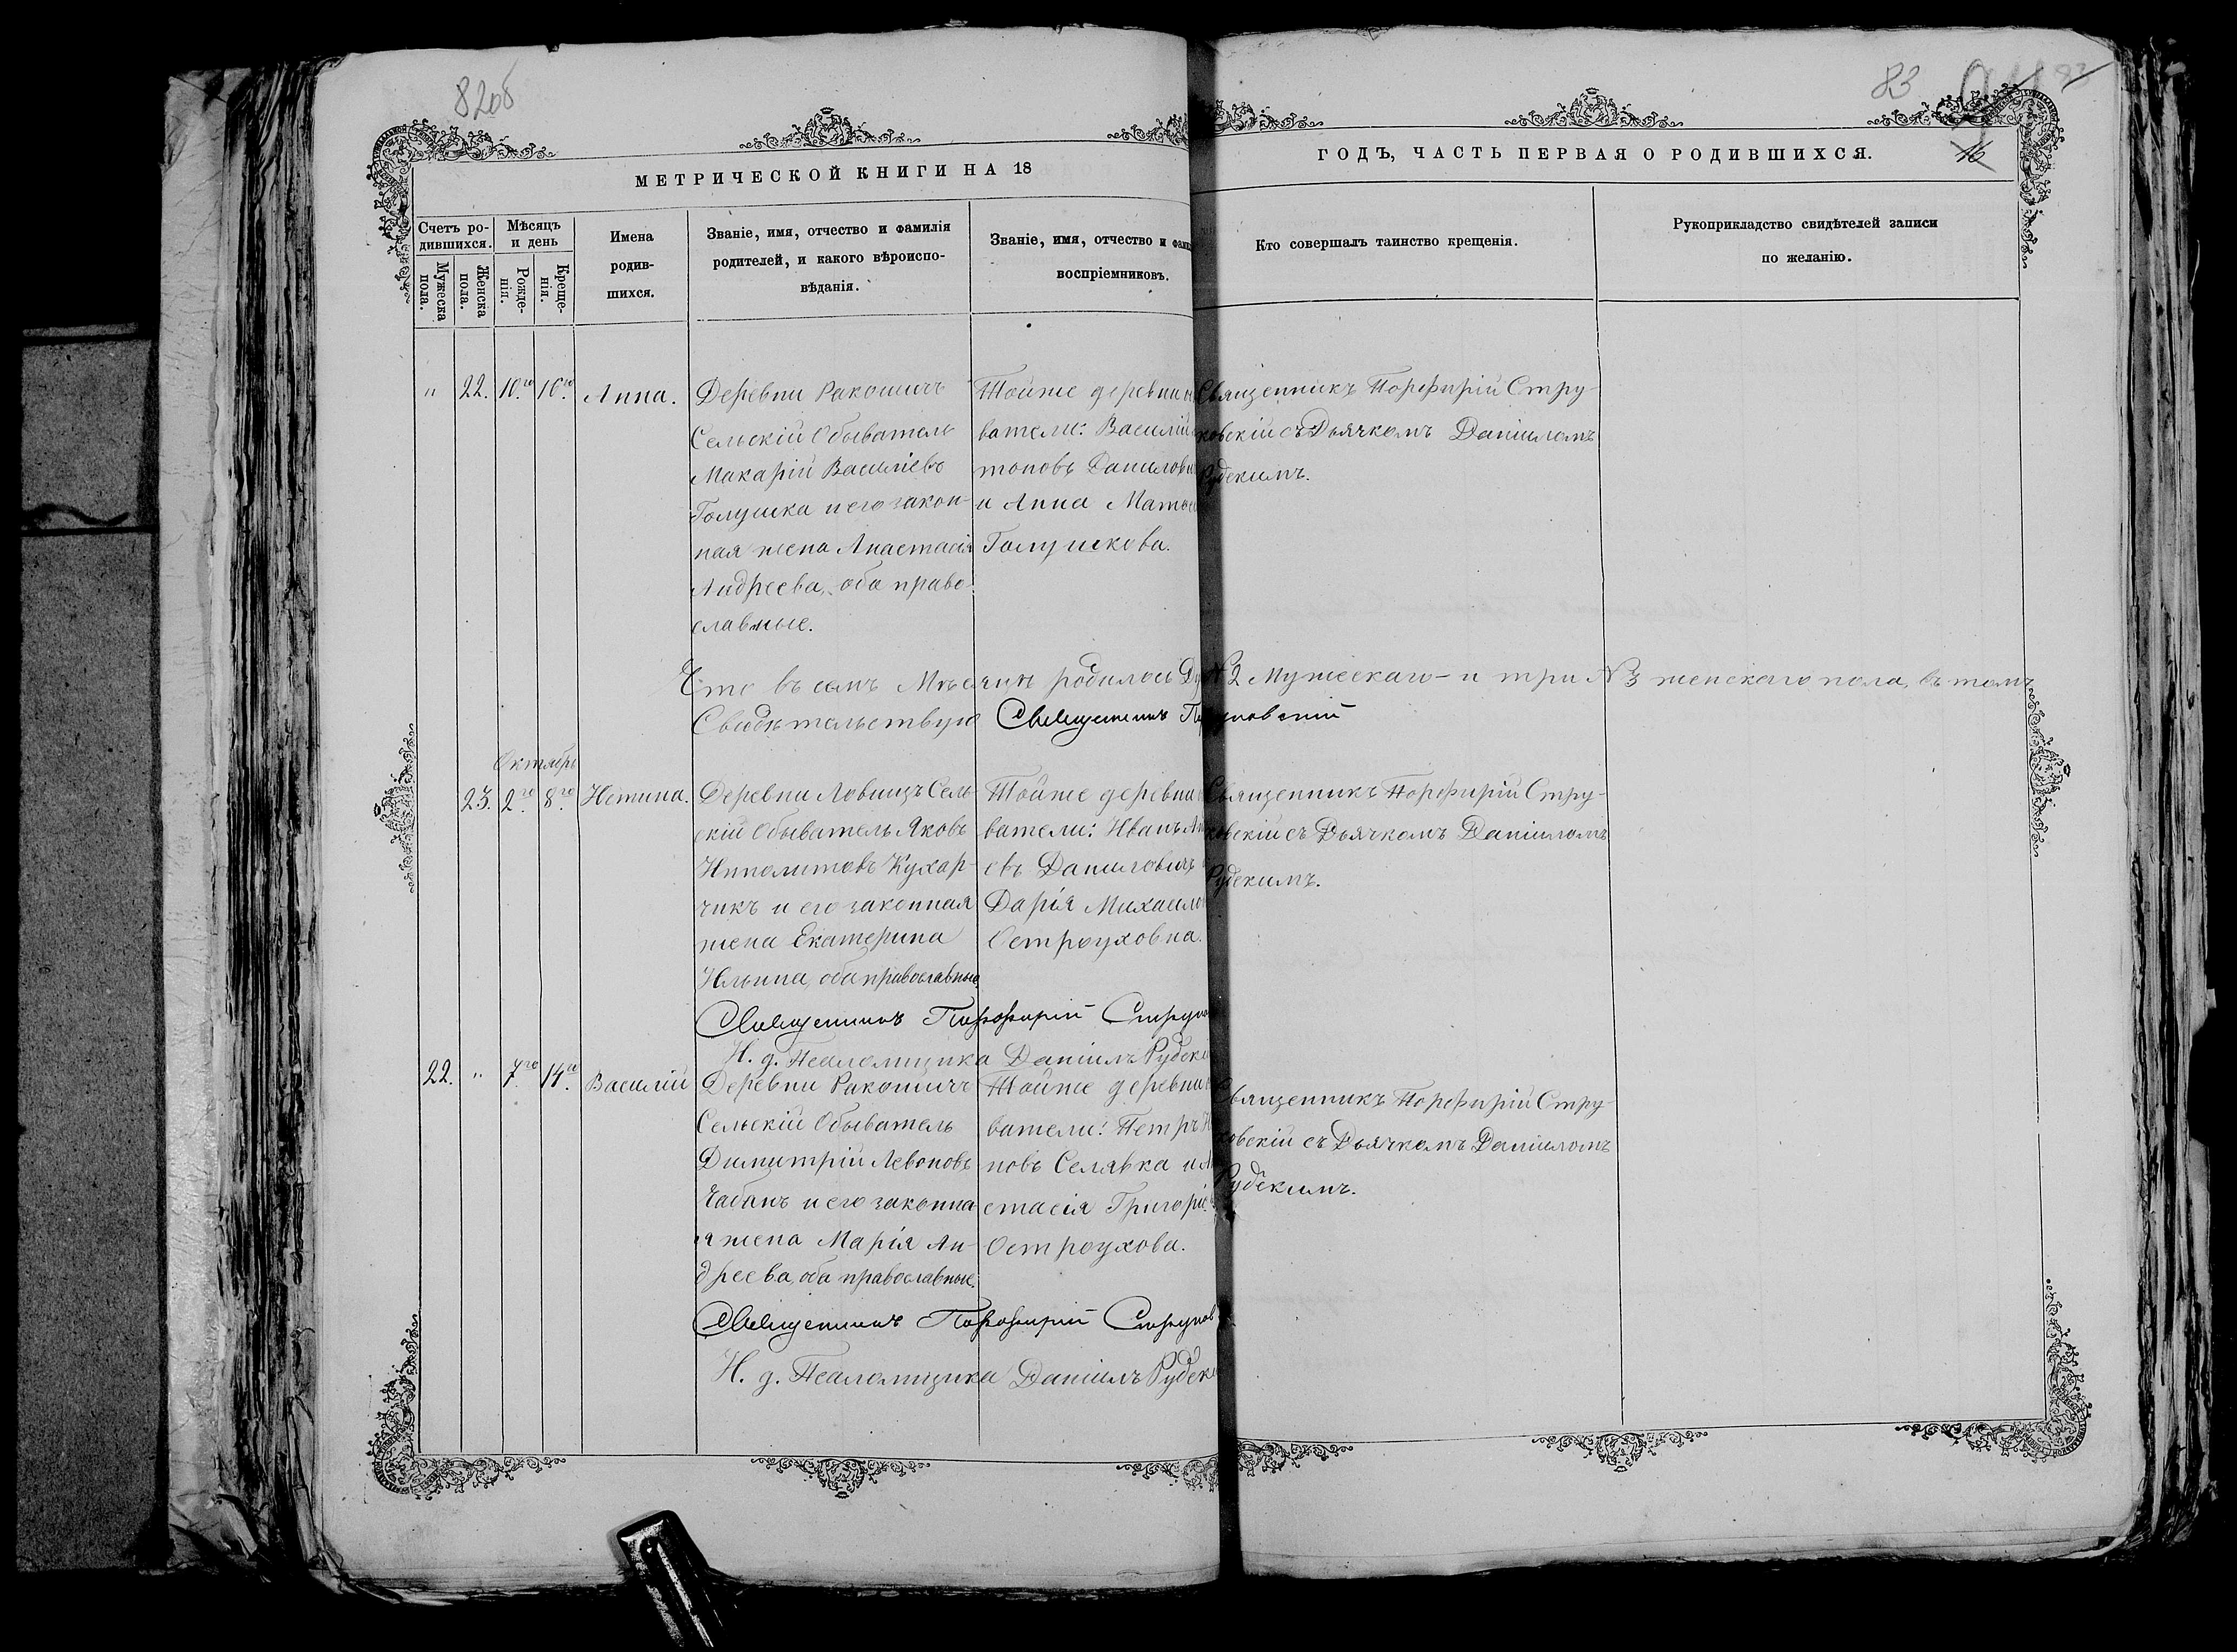 82об
83
МЕТРИЧЕСКОЙ КНИГИ НА 18
ГОДЪ, ЧАСТЬ ПЕРВАЯ О РОДИВШИХСЯ.
16
Счетъ ро-
дившихся.
Мужеска
пола.
Женска
пола.
Мѣсяцъ
и день
Рожде-
нія.
Креще-
нія.
Имена
родив-
шихся.
Званіе, имя, отчество и фамилія
родителей, и какого вѣроиспо-
вѣданія.
Званіе, имя, отчество и фами
воспріемниковъ.
Кто совершалъ таинство крещенія.
Рукоприкладство свидѣтелей записи
по желанію.
" 22. 10.го 16.го Анна.
Деревни Ракошичъ
Сельскій Обыватель
Макарій Василіевъ
Голушка и его закон-
ная жена Анастасія
Андреева, оба право-
славные.
Тойже деревни
ватели: Василій
тоновъ Данилови
и Анна Матв
Голушкова.
Священникъ Порфирій Стру-
ковскій съ Дьячкомъ Даніиломъ
Рудскимъ.
Что въ семъ Мѣсяцѣ родилось № 2 Мужескаго - и три № 3 женскаго пола, въ томъ
Свидѣтельствую Священникъ
Октябрь
23. 2го 8.го Устина.
Деревни Ловницъ Сель-
скій Обыватель Яковъ
Ипполитовъ Кухар-
чикъ и его законная
жена Екатерина
Ильина, оба православные
Тойже деревни
ватели: Иванъ
евъ Даниловичъ
Дарія Михаило
Остроуховна.
Священникъ Порфирій Стру-
ковскій съ Дьячкомъ Даніиломъ
Рудскимъ.
Священникъ Порфирій Струко
И. д. Псаломщика Даніилъ Рудск
22. " 7го 14.го Василій
Деревни Ракошичъ
Сельскій Обыватель
Димитрій Левоновъ
Чабанъ и его законна-
я жена Марія Ан-
дреева, оба православные.
Тойже деревни
ватели: Петръ
новъ Селявка и
стасія Григоріе
Остроухова.
Священникъ Порфирій Стру-
ковскій съ Дьячкомъ Даніиломъ
Рудскимъ.
Священникъ Порфирій Струков
И. д. Псаломщика Даніилъ Рудск